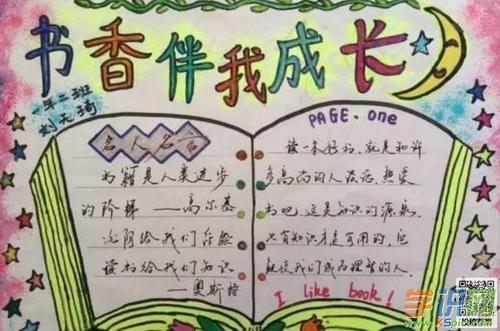 书香伴我成长
二班
刘天
名人名言
书籍是人类进步
的阶梯 ——高尔基
光阴给我们经验
读书给我们知识
——奥斯特
PAGE.one
读一本好书,就是和许
多高尚的人谈话,热爱
书吧,这是知识的源泉.
只有知识才是可用的,它
能使我们成为理智的人.
I like book!